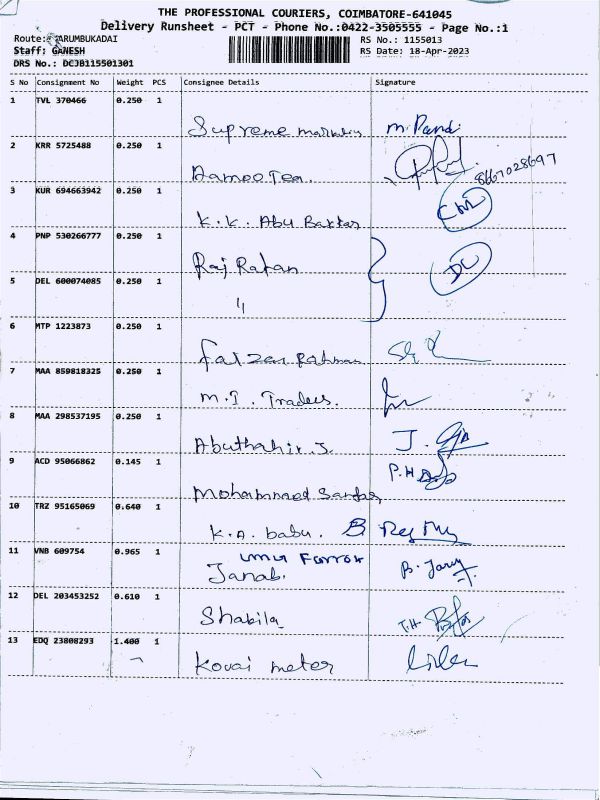 THE PROFESSIONAL COURIERS, COIMBATORE-641045
Delivery Runsheet - PCT - Phone No.:0422-3505555 - Page No.:1
Route: KARUMBUKADAI RS No.: 1155013
Staff: GANESH RS Date: 18-Apr-2023
DRS No.: DCJB115501301
S No Consignment No Weight PCS Consignee Details Signature
1 TVL 370466 0.250 1
Supreme m. Pandi
2 KRR 5725488 0.250 1
Damoo Tea. 8667028697
3 KUR 694663942 0.250 1
K.K. Abu Bakkar
4 PNP 530266777 0.250 1
Raj Ratan DC
5 DEL 600074085 0.250 1
"
6 MTP 1223873 0.250 1
Faizan Rahman
7 MAA 859818325 0.250 1
M.I. Traders.
8 MAA 298537195 0.250 1
Abuthahir. J. J.
9 ACD 95066862 0.145 1 P.H
Mohammed Sardar
10 TRZ 95165069 0.640 1
K.A. babu.
11 VNB 609754 0.965 1 Umar Farrok
Janab.
12 DEL 203453252 0.610 1
Shabila T.H.
13 EDQ 23808293 1.400 1
Kovai meter